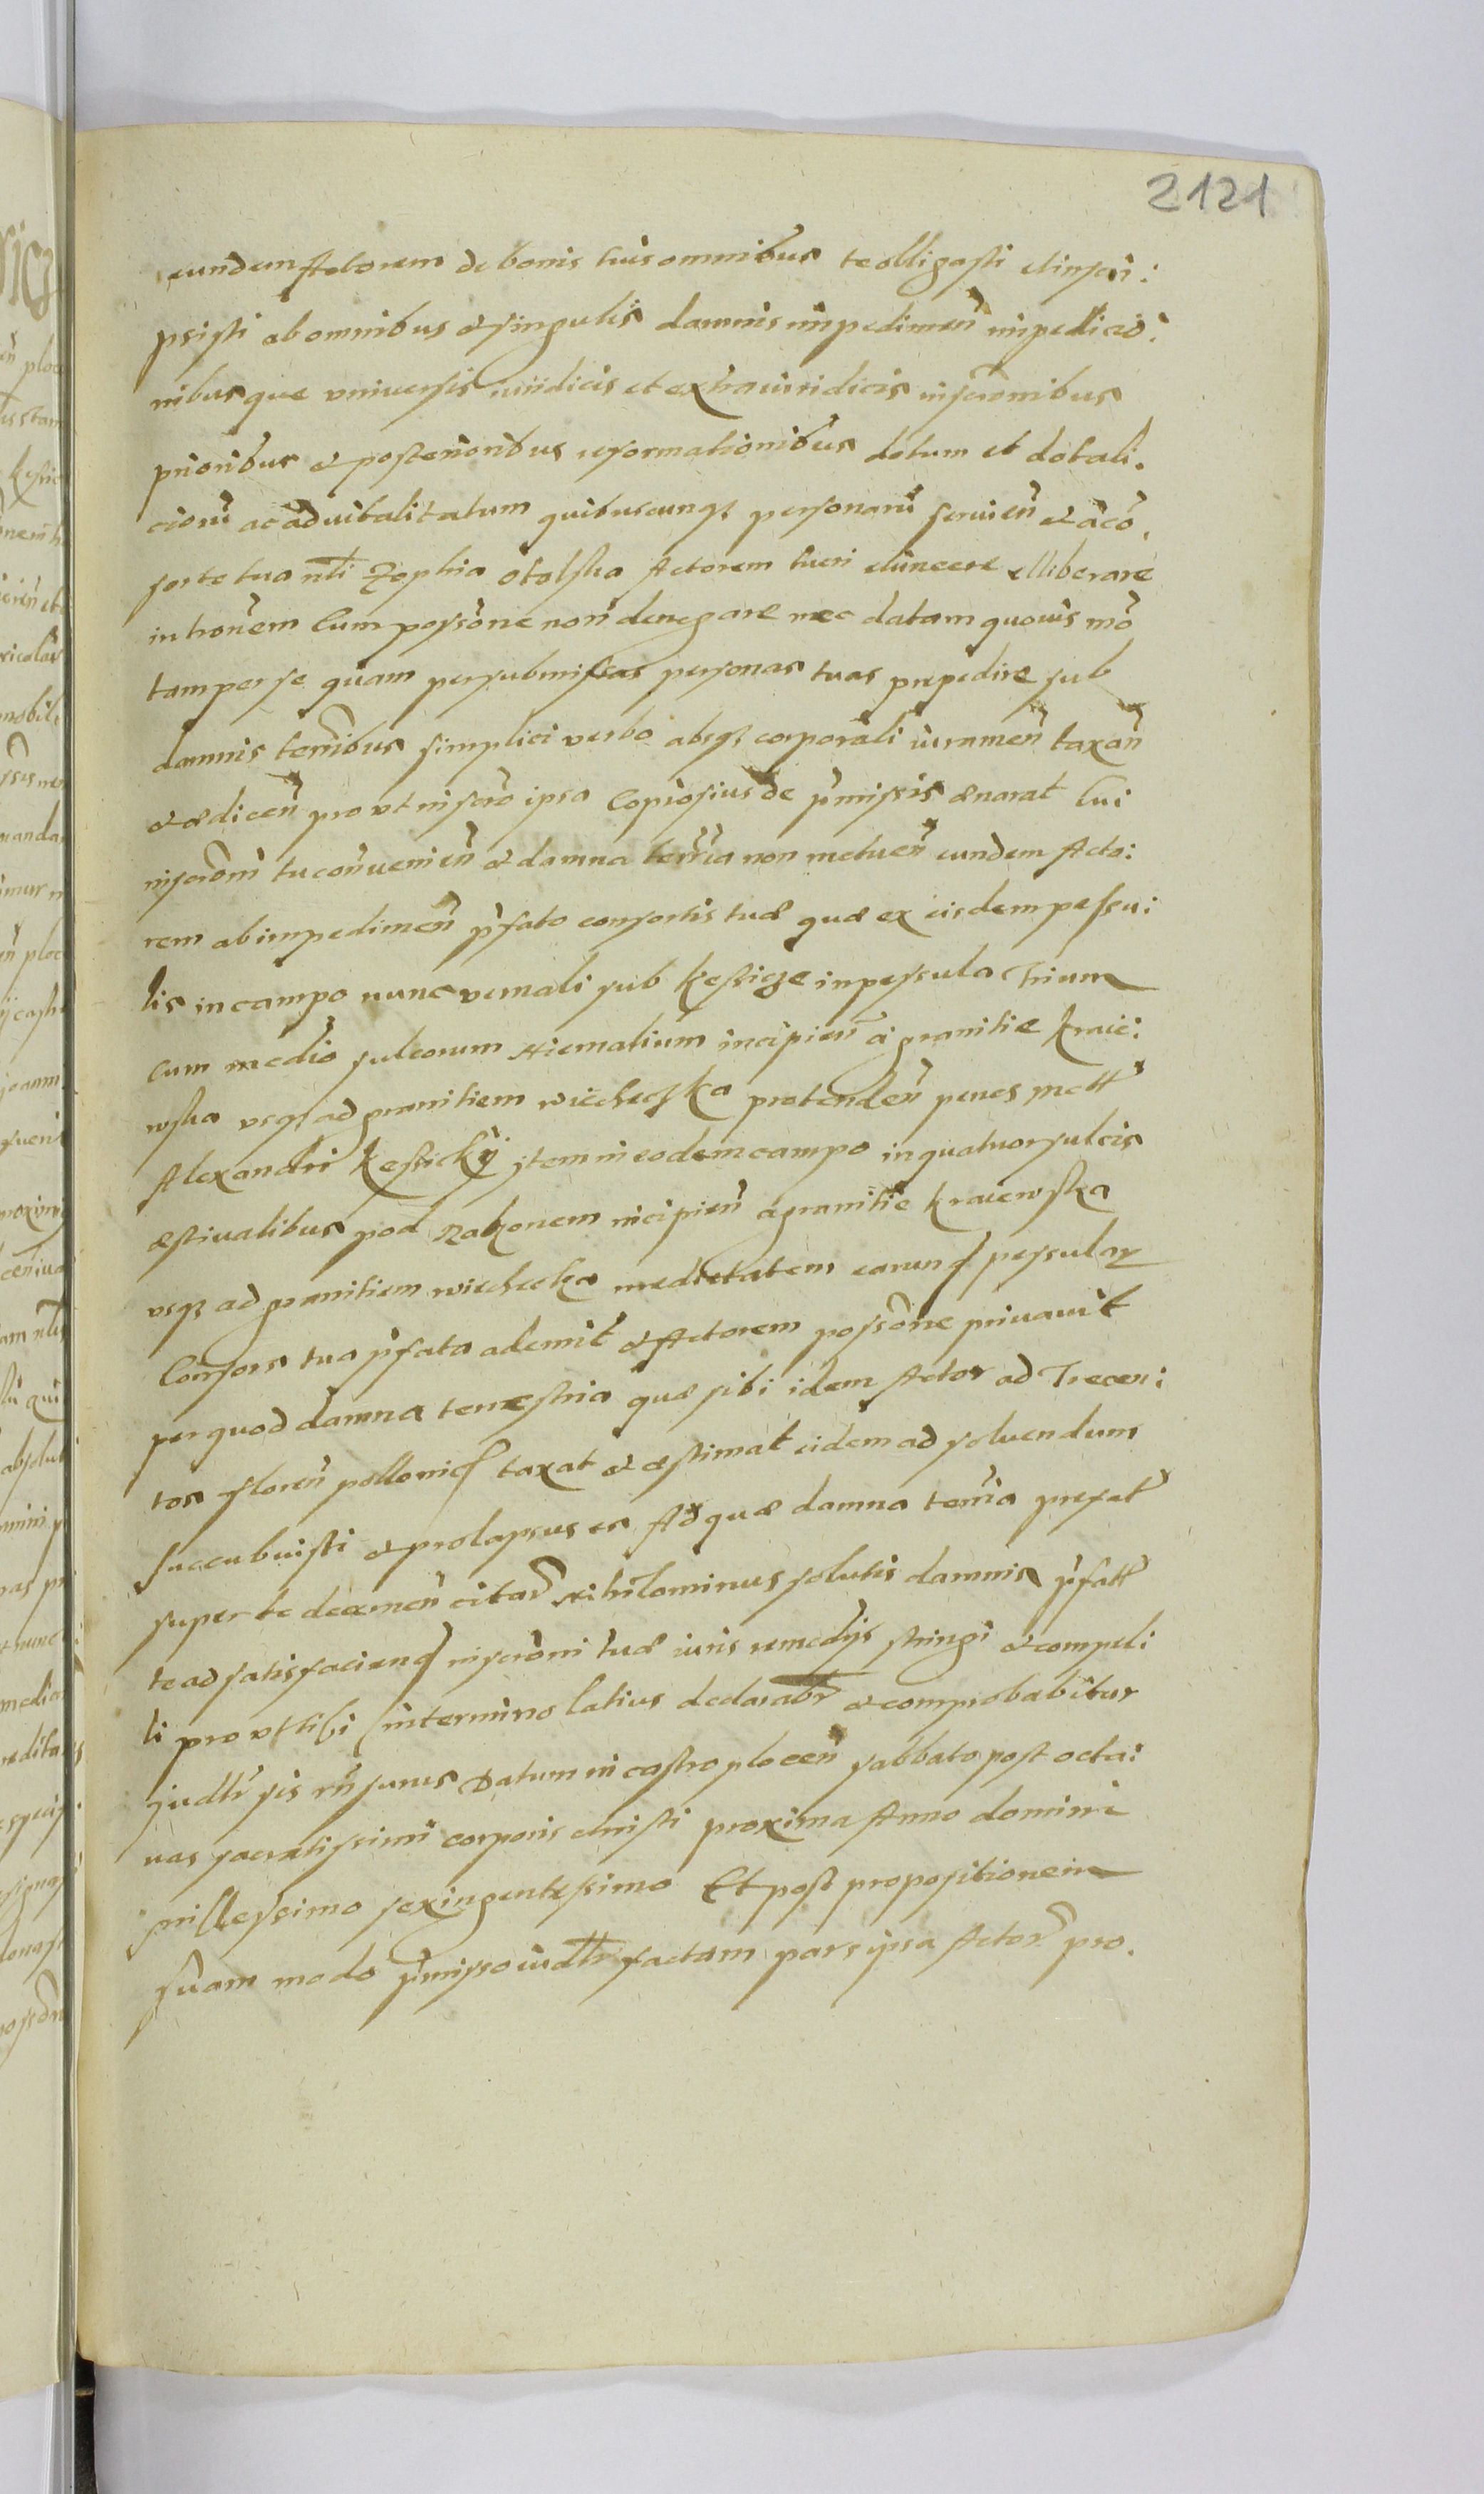 2121
eundem Actorem de bonis tuis omnibus te olligasti et inscri:
psisti ab omnibus et singulis damnis impedimen̄ impeticiō:
nibusque vniuersis iuridicis et extraiuridicis inscrōnibus
prioribus et posterioribus reformationibus dotum et dotali.
cioru ac aduitalitatum quibuscunqȝ personaru seruien̄ et a cō.
sorte tua nli Zophia Otolska Actorem tueri euincere elliberare
intron̄em Cum possōne non̄ denegare nec datam quouis mō
tam per se quam per submissas personas tuas prepedire sub
damnis terr̄ibus simplici verbo absqȝ corporali iuramen̄ taxan̄
et edicen̄ pro vt inscrō ipsa Copiosius de p̄missis ænarat Cui
inscrōni tu con̄uenien̄ et damna terr̄ia non metuen̄ eundem Acto:
rem ab impedimen̄ p̄fato consortis tuæ quæ ex eisdem pessu:
lis in campo nunc vernali sub Kessicze in pessula Trium
Cum medio sulcorum Hiematium incipien̄ a granitie Kraie:
wska vsqȝ ad granitiem Wiecheczka protenden̄ penes
Alexandri Kessicky Jtem in eodem campo in quatuor sulcis
æstiualibus pod incipien̄ a granitie Kraiewska
vsqȝ ad granitiem Wiechecka medietatem earund pessular
Consors tua p̄fata ademit et Actorem possōne priuauit
per quod damna terrestria quæ sibi idem Actor ad Trecen:
tos floren̄ pollonic taxat et æstimat eidem ad soluendum
succubuisti et prolapsus es Ad quæ damna terr̄ia prefat
super te decernen̄ citar̄ Nihilominus solutis damnis p̄fatt
te ad satisfaciend inscrōni tuæ iuris remedijs stringi et compelli
li pro vt tibi in termino latius declarabr̄ et comprobabitur
Judtr̄ sis rn̄surus Datum in castro plocen̄ sabbato post octa:
uas sacratissimi corporis christi proxima Anno domini
millessimo sexingentessimo Et post propositionem
suam modo p̄misso iudtr̄ factam pars ipsa Actor̄ pro.